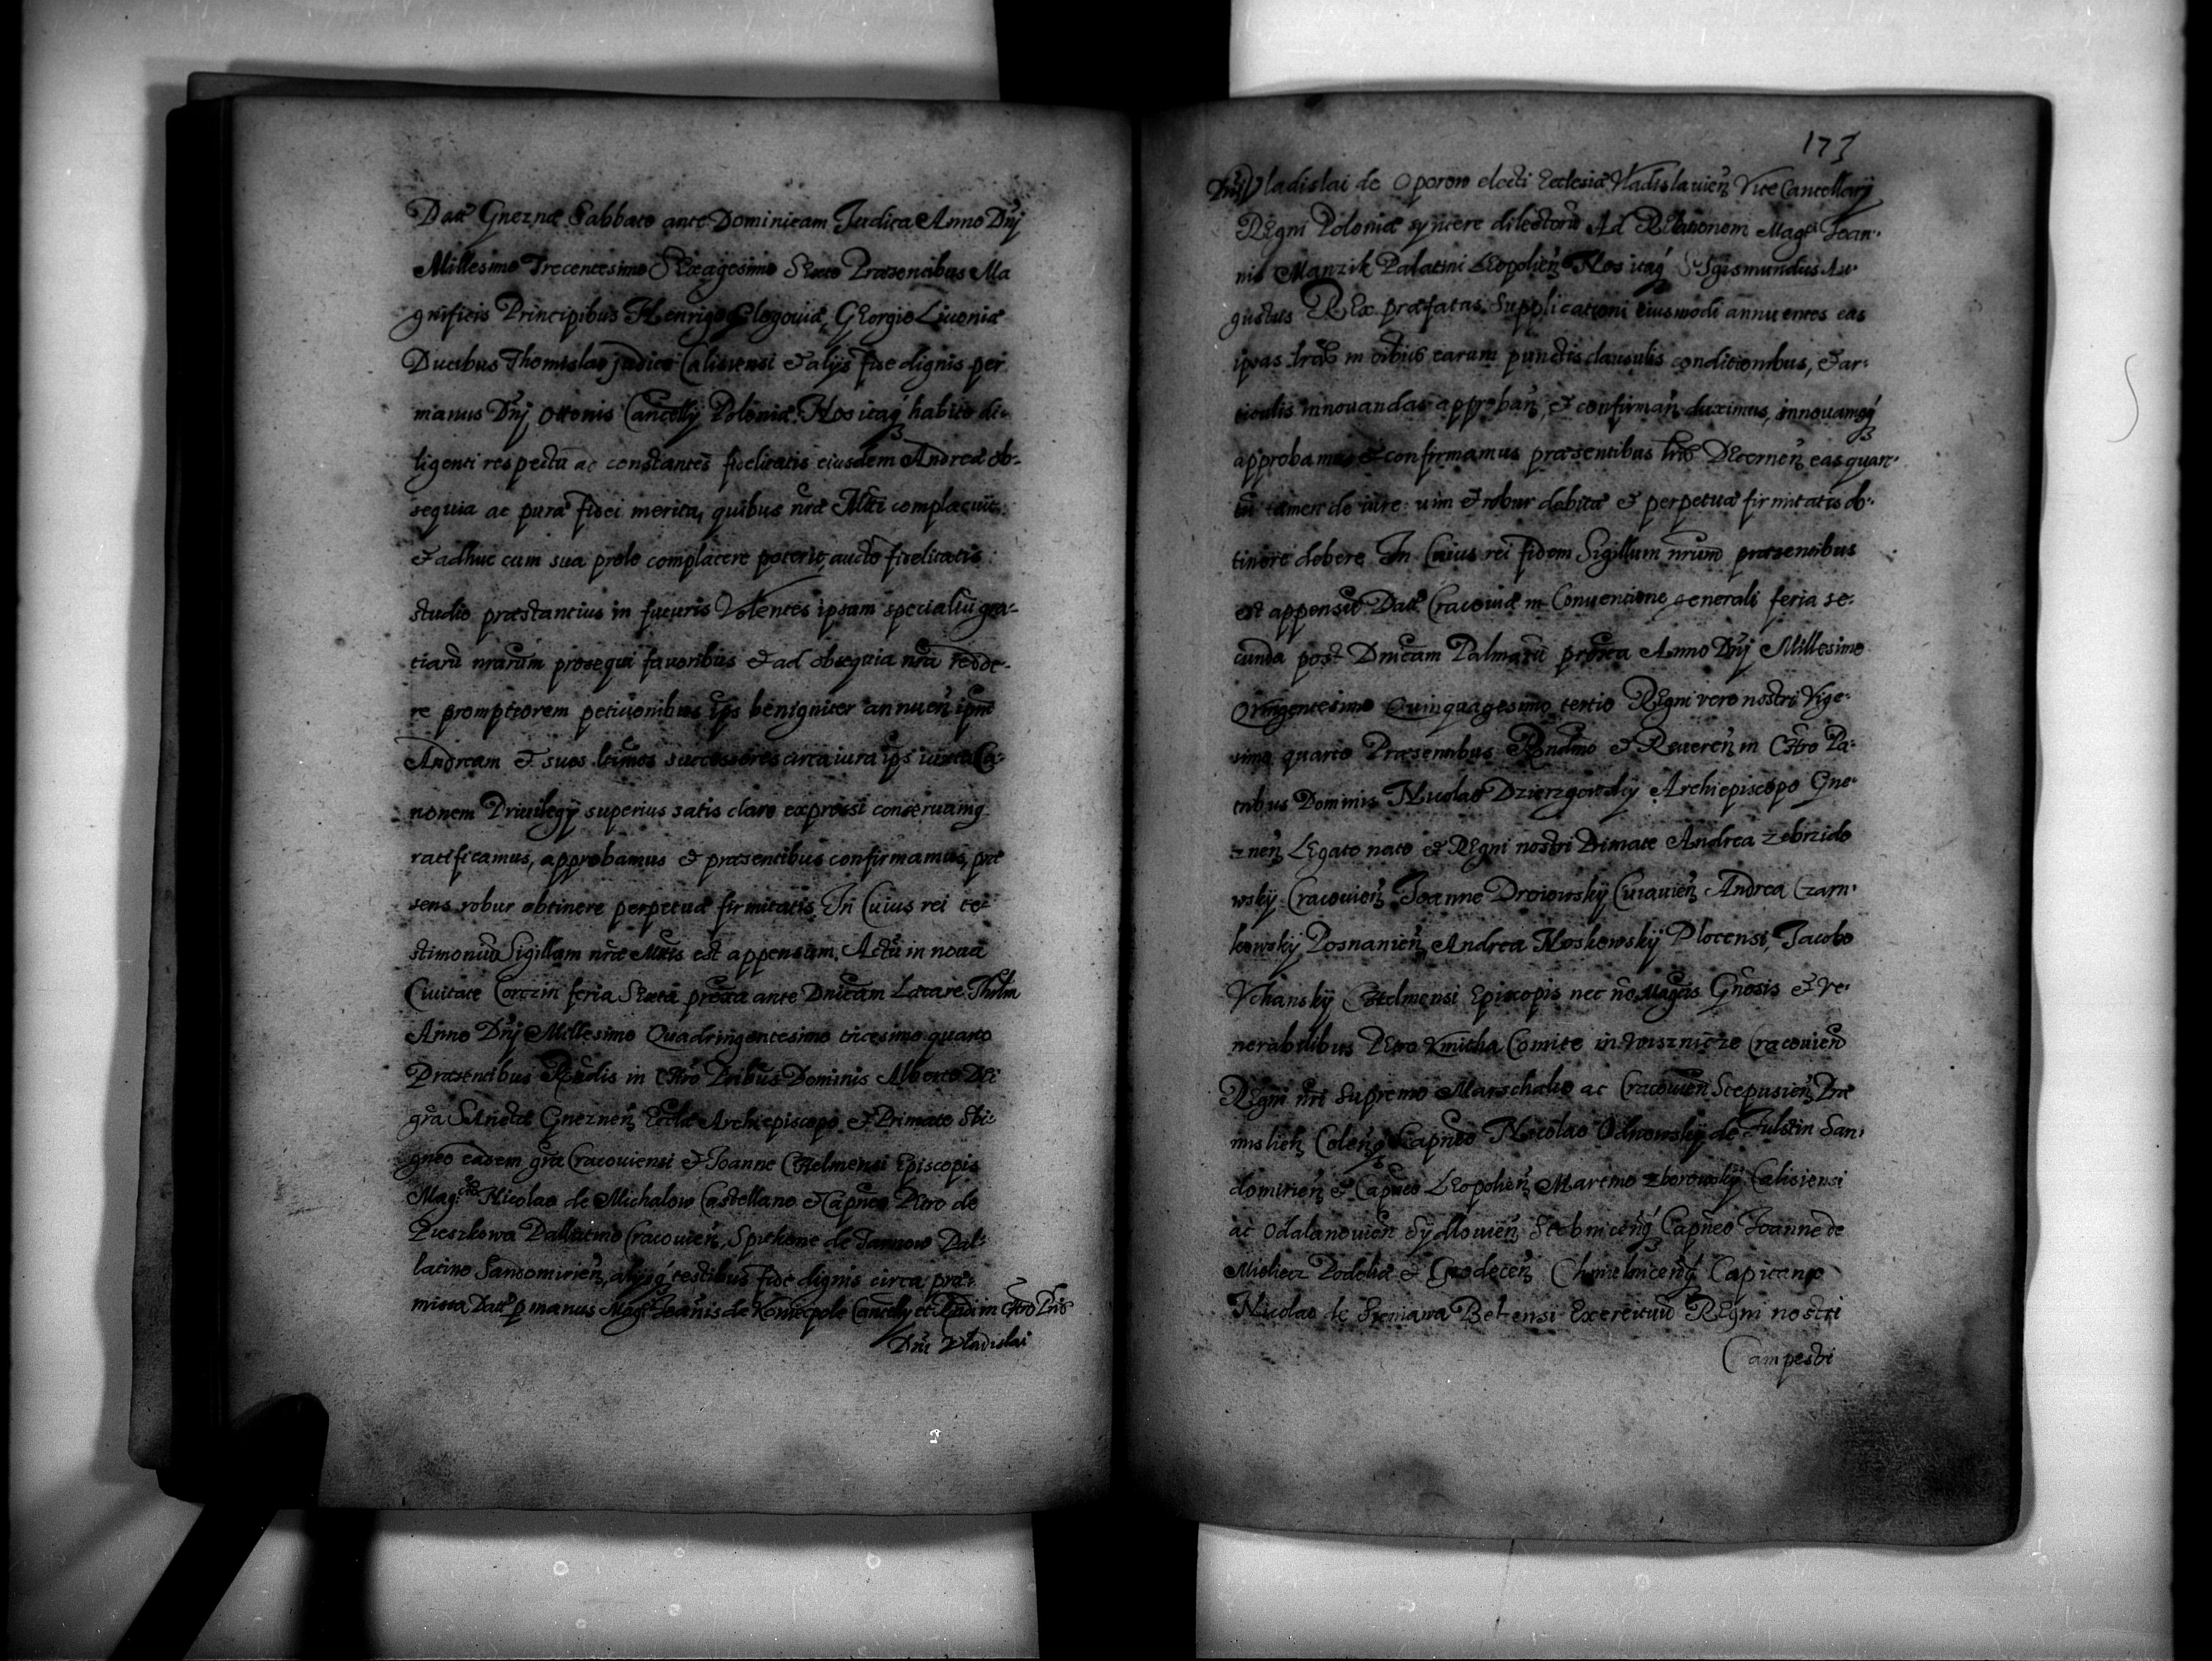 Datt Gneznæ Sabbato ante Dominicam Judica Anno Dnj
Millesimo Trecentesimo Sexagesimo Sexto Præsentibus Ma
gnificis Principibus Henrigo Glogouiæ, Georgio Liuoniæ
Ducibus Thomislao judice Calisiensi et alijs fide dignis per
manus Dnj Ottonis Cancellÿ Poloniæ. Nos itaq habito di-
ligenti respectu ac constantes fidelitatis eiusdem Andreæ ob-
sequia ac puræ fidei merita, quibus nræ Mtti complacuit
et adhuc cum sua prole complacere poterit, aucto fidelitatis
studio præstantius in futuris Volentes ipsam specialiu gra-
tiaru nrarum prosequi fauoribus et ad obsequia nra redde-
re promptiorem petitionibus ips benigniter annuen ipm
Andream et suos ltimos successores circa iura ips iuxta Ca-
nonem Priuilegÿ superius satis clare expressi conseruamq
ratificamus, approbamus et præsentibus confirmamus, præ
sens robur obtinere perpetuæ firmitatis. In Cuius rei te-
stimoniu Sigillum nræ Mttis est appensum. Actu in noua
Ciuitate Corczin feria Sexta proxa ante Dnicam Lætare
Anno Dnj Millesimo Quadringentesimo tricesimo quarto
Præsentibus Rndis in Chro Pribus Dominis Alberto Dei
gra Sanctæ Gneznen Ecclæ Archiepiscopo et Primate Sbi-
gneo eadem gra Cracouiensi et Joanne Chelmensi Episcopis
Mag: Nicolao de Michalow Castellano et Capneo Petro de
Pieszkowa Pallatino Cracouien, Spithone de Tarnow Pal-
latino Sandomirien, alijsq testibus fide dignis circa præ-
missa Datt p manus Magci Joanis de Koniecpole Cancelly et Rndi in Chro Pris
Dni Vladislai
173
Dnj Vladislai de Oporow electi Ecclesiæ Wladislauien Vice Cancellarij
Regni Poloniæ syncere dilectoru Ad Relationem Magci Joan-
nis Manzik Palatini Leopolien Nos itaq Sigismundus Au-
gustus Rex præfatas Supplicationi eiusmodi annuentes eas
ipsas lras in oibus earum punctis clausulis conditionibus, et ar-
ticulis innouandas approban, et confirman duximus, innouamq
approbamus et confirmamus præsentibus lris Decernen eas quan-
tu tamen de iure: uim et robur debitæ et perpetuæ firmitatis ob-
tinere debere In Cuius rei fidem Sigillum nrum præsentibus
est appensu Datt Cracouiæ in Conuentione generali feria se-
cunda post Dnicam Palmaru proxa Anno Dnj Millesimo
Qringentesimo Quinquagesimo tertio Regni vero nostri Vige-
simo quarto Præsentibus Rndmo et Reueren in Chro Pa-
tribus Dominis Nicolao Dzierzgowsky Archiepiscopo Gne-
znen Legato nato et Regni nostri Primate Andrea Zebrzido
wsky Cracouien Joanne Droiowskÿ Cuiauien Andrea Czarn-
kowskÿ Posnanien Andrea Noskowskÿ Plocensi, Jacobo
Vchanskÿ Chelmensi Episcopis nec no Magcis Gnosis et ve-
nerabilibus Petro Kmitha Comite in Wisznicze Cracouien
Regni nri Supremo Marschalco ac Cracouien Scepusien Præ
mislien Colenq Capneo Nicolao Odnowskÿ de Fulstin San-
domirien et Capneo Leopolien Martino Zborowskÿ Calisiensi
ac Odalanouien Sydlouien Stobnicenq Capneo Joanne de
Mielecz Podoliæ et Grodecen Chmielnicenq Capitaneo
Nicolao de Sieniawa Belzensi Exercituu Regni nostri
Campestri